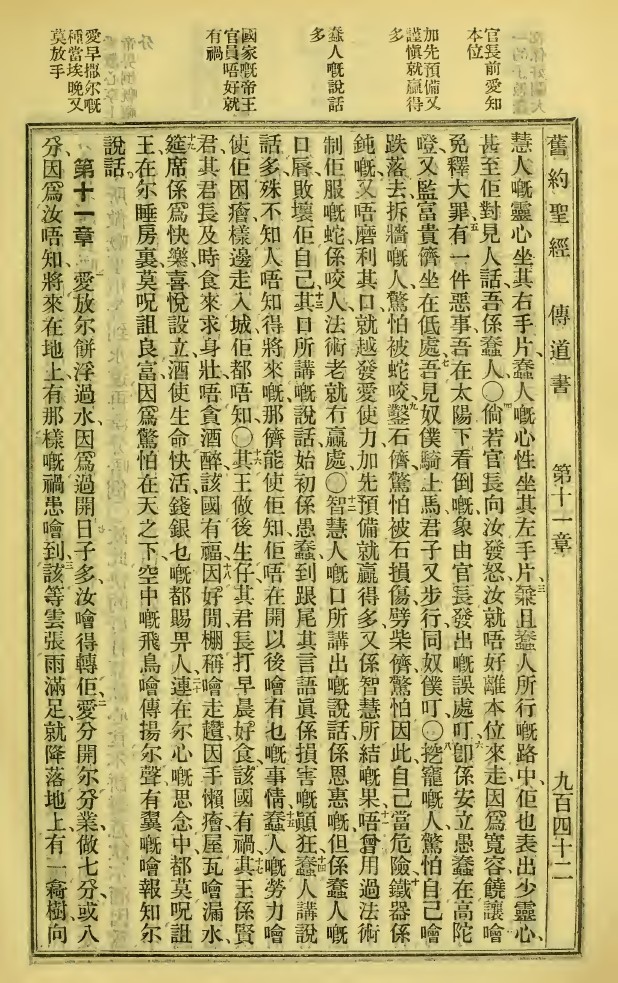 舊約聖經 傳道書 第十一章 九百四十二
官長前愛知
本位
加先預備又
謹慎就贏得
多
蠢人嘅說話
多
國家嘅帝王
官員唔好就
有禍
愛早撒尔嘅
種當埃晚又
莫放手
慧人嘅靈心坐其右手片、蠢人嘅心性坐其左手片、三𠔥且蠢人所行嘅路中、佢也表出少靈心、
甚至佢對見人話、吾係蠢人〇四倘若官長向汝發怒、汝就唔好離本位來走、因爲寬容饒讓、噲
免釋大罪、五有一件惡事、吾在太陽下看倒嘅、象由官長發出嘅誤處叮、六卽係安立愚蠢在高陀
嶝、又監富貴儕坐在低處、七吾見奴僕騎上馬、君子又步行同奴僕叮〇八挖窿嘅人、驚怕自己噲
跌落去、拆牆嘅人、驚怕被蛇咬、九鑿石儕、驚怕被石損傷、劈柴儕、驚怕因此自己當危險、十鐵器係
鈍嘅、又唔磨利其口、就越發愛使力、加先預備就贏得多、又係智慧所結嘅果、十一唔曾用過法術
制佢服嘅蛇係咬人、法術老就冇贏處〇十二智慧人嘅口所講出嘅說話係恩惠嘅、但係蠢人嘅
口唇、敗壞佢自己、十三其口所講嘅說話、始初係愚蠢、到跟尾其言語眞係損害嘅顚狂、十四蠢人講說
話多、殊不知人唔知得將來嘅、那儕能使佢知佢唔在開以後噲有乜嘅事情、十五蠢人嘅勞力、噲
使佢困瘡樣、邊走入城佢都唔知〇十六其王做後生仔、其君長打早晨好食、該國有禍、十七其王係賢
君、其君長及時食來求身壯、唔貪酒醉、該國有福、十八因好閒棚稱噲走趲、因手懶瘡、屋瓦噲漏水、
十九筵席係爲快樂喜悅設立、酒使生命快活、錢銀乜嘅都賜畀人、二十連在尔心嘅思念中、都莫呪詛
王、在尔睡房裏、莫呪詛良富、因爲驚怕在天之下空中嘅飛鳥、噲傳揚尔聲、有翼嘅噲報知尔
說話。
第十一章 一愛放尔餅浮過水、因爲過開日子多、汝噲得轉佢、二愛分開尔分業做七分、或八
分、因爲汝唔知將來在地上有那樣嘅禍患噲到、三該等雲張雨滿足、就降落地上、有一喬樹向